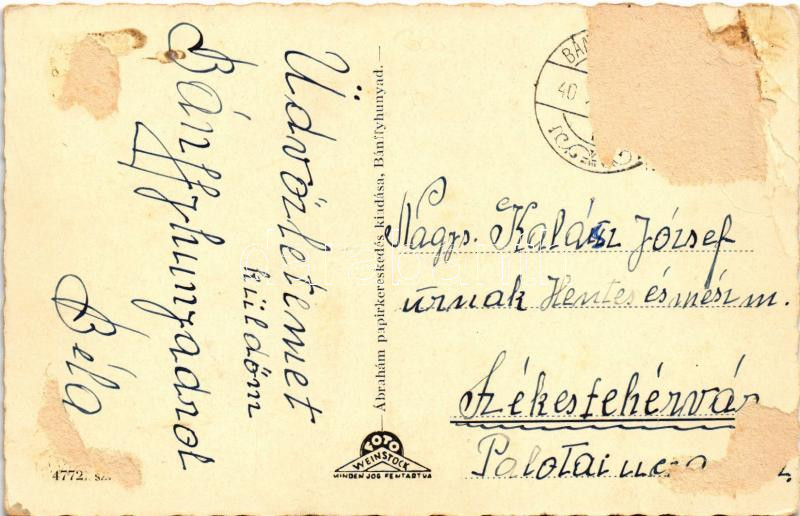 Üdvözletemet
küldöm
Bánffyhunyadrol
Béla
Ábrahám papírkereskedés kiadása, Bánffyhunyad.
BÁN
40
Nagys. Kalász József
úrnak Hentes és mész m.
Székesfehérvár
Palotai
FOTO
WEINSTOCK
MINDEN JOG FENTARTVA
4772. sz.